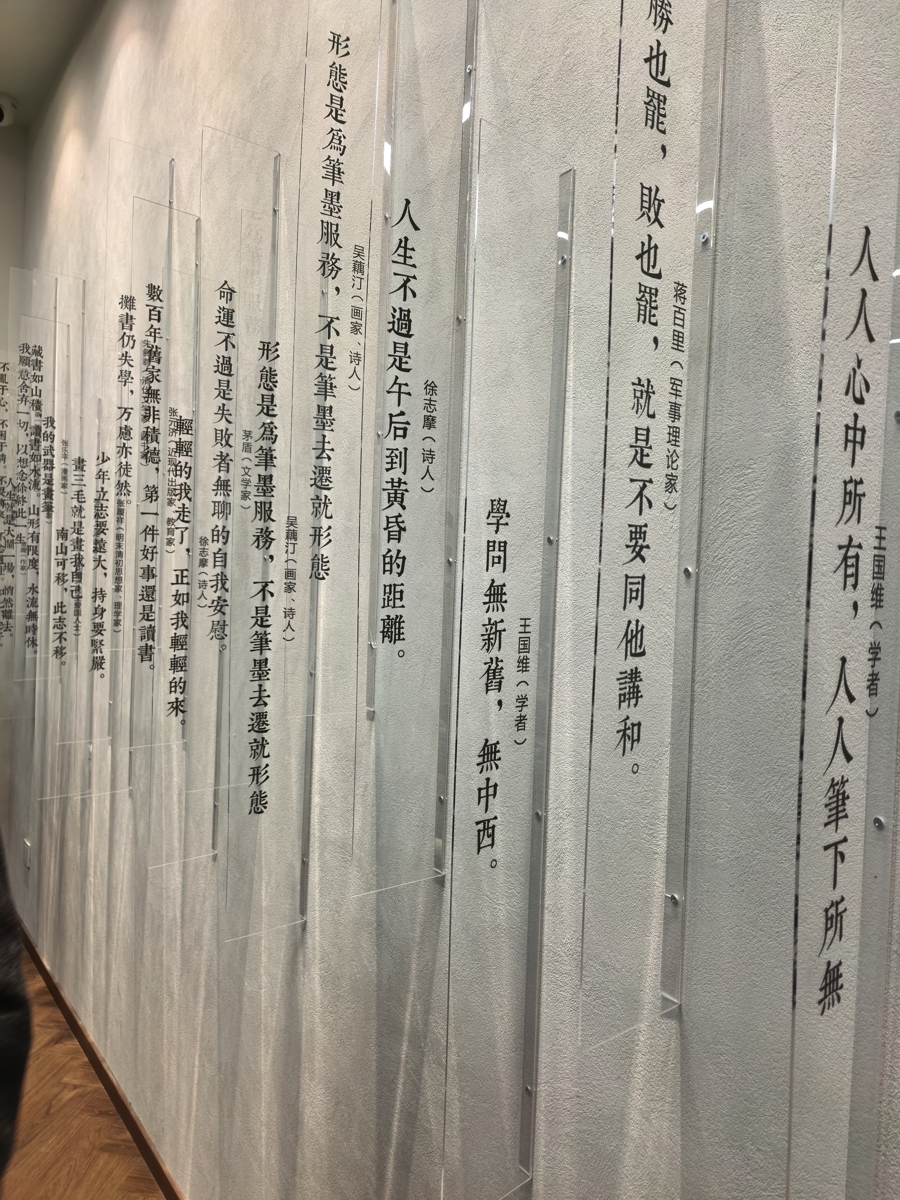 人人心中所有，人人筆下所無
王国维（学者）
勝也罷，敗也罷，就是不要同他講和。
蒋百里（军事理论家）
學問無新舊，無中西。
王国维（学者）
人生不過是午后到黃昏的距離。
徐志摩（诗人）
形態是為筆墨服務，不是筆墨去遷就形態
吴藕汀（画家、诗人）
形態是為筆墨服務，不是筆墨去遷就形態
吴藕汀（画家、诗人）
命運不過是失敗者無聊的自我安慰。
茅盾（文学家）
輕輕的我走了，正如我輕輕的來。
徐志摩（诗人）
數百年舊家無非積德，第一件好事還是讀書。
张元济（近现代出版家、教育家）
攤書仍失學，万慮亦徒然。
少年立志要遠大，持身要緊嚴。
张履祥（明末清初思想家、理学家）
畫三毛就是畫我自己
南山可移，此志不移。
我的武器是畫筆
藏書如山積，讀書如水流。山形有限度，水流無時休。